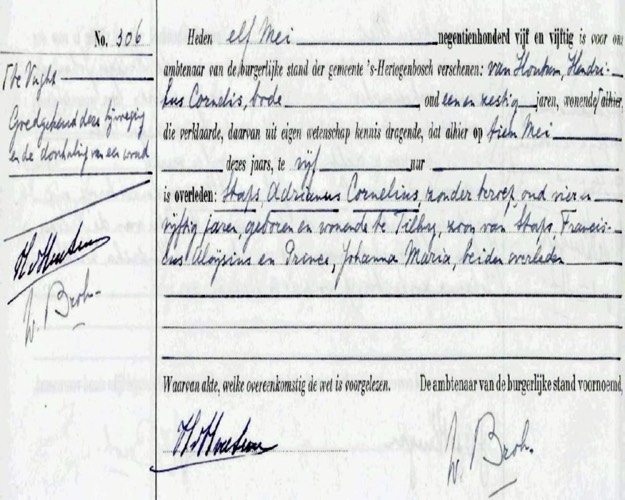 No. 306
te Vught
Goedgekeurd deze bijvoeging
en de doorhaling van een woord
HvHoutum
W. Broh.
Heden elf Mei negentienhonderd vijf en vijftig is voor on
ambtenaar van de burgerlijke stand der gemeente 's-Hertogenbosch verschenen: van Houtum, Hendri-
kus Cornelis, bode oud een en zestig jaren, wonende alhier
die verklaarde, daarvan uit eigen wetenschap kennis dragende, dat alhier op tien Mei
dezes jaars, te vijf uur
is overleden: Staps, Adrianus Cornelius, zonder beroep, oud vier en
vijftig jaren geboren en wonende te Tilburg, zoon van Staps, Francis-
cus Aloÿsius en Prince, Johanna Maria, beiden overleden
Waarvan akte, welke overeenkomstig de wet is voorgelezen. De ambtenaar van de burgerlijke stand voornoemd,
HvHoutum
W. Broh.